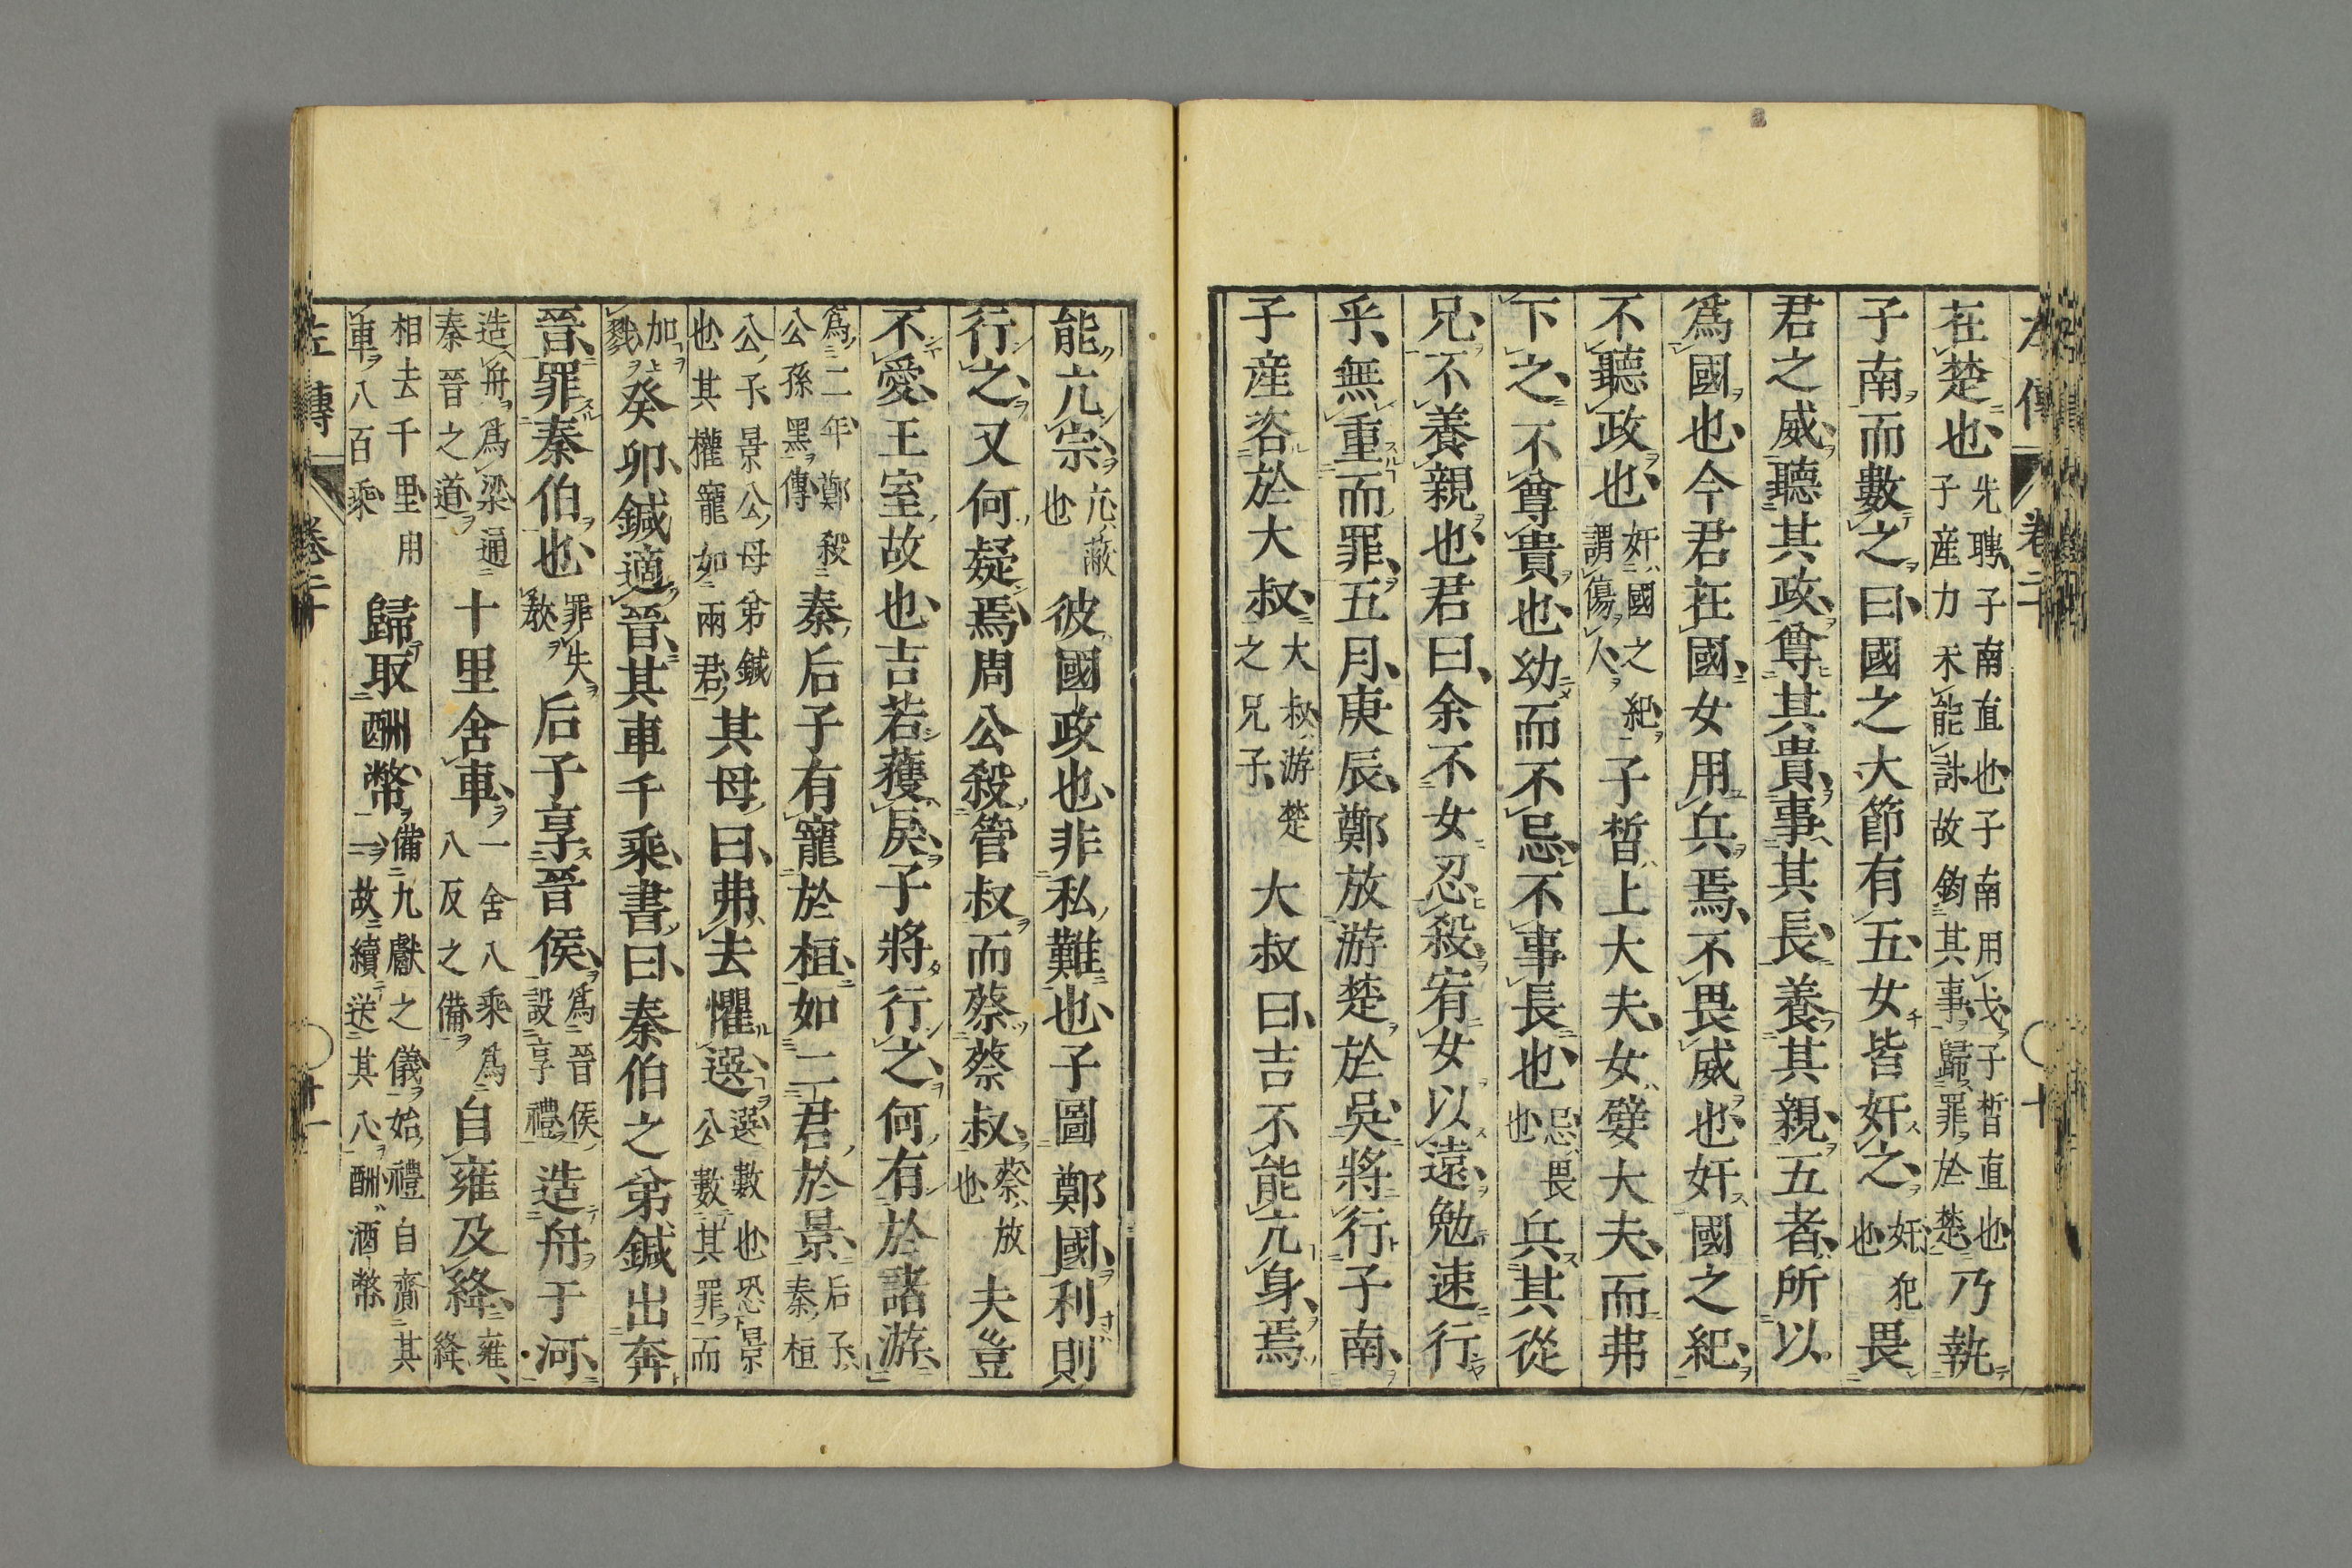 左傳 卷二十 十
在楚也先聘子南直也子南用戈子皙直也子産力未能討故鈞其事歸罪於楚乃執
子南而數之曰國之大節有五女皆奸之奸犯也畏
君之威聽其政尊其貴事其長養其親五者所以
爲國也今君在國女用兵焉不畏威也奸國之紀
不聽政也奸國之紀謂傷人子皙上大夫女嬖大夫而弗
下之不尊貴也幼而不忌不事長也忌畏也兵其從
兄不養親也君曰余不女忍殺宥女以遠勉速行
乎無重而罪五月庚辰鄭放游楚於吳將行子南
子産咨於大叔大叔游楚之兄子大叔曰吉不能亢身焉
能亢宗亢蔽也彼國政也非私難也子圖鄭國利則
行之又何疑焉周公殺管叔而蔡蔡叔蔡放也夫豈
不愛王室故也吉若獲戾子將行之何有於諸游
爲二年鄭殺公孫黑傳秦后子有寵於桓如二君於景后子秦桓
公子景公母弟鍼也其權寵如兩君其母曰弗去懼選選數也恐景公數其罪而
加戮癸卯鍼適晉其車千乘書曰秦伯之弟鍼出奔
晉罪秦伯也罪失敎后子享晉侯爲晉侯設享禮造舟于河
造舟爲梁通秦晉之道十里舍車一舍八乘爲八反之備自雍及絳雍絳
相去千里用車八百乘歸取酬幣備九獻之儀始禮自齎其一故續送其八酬酒幣
左傳 卷二十 十一